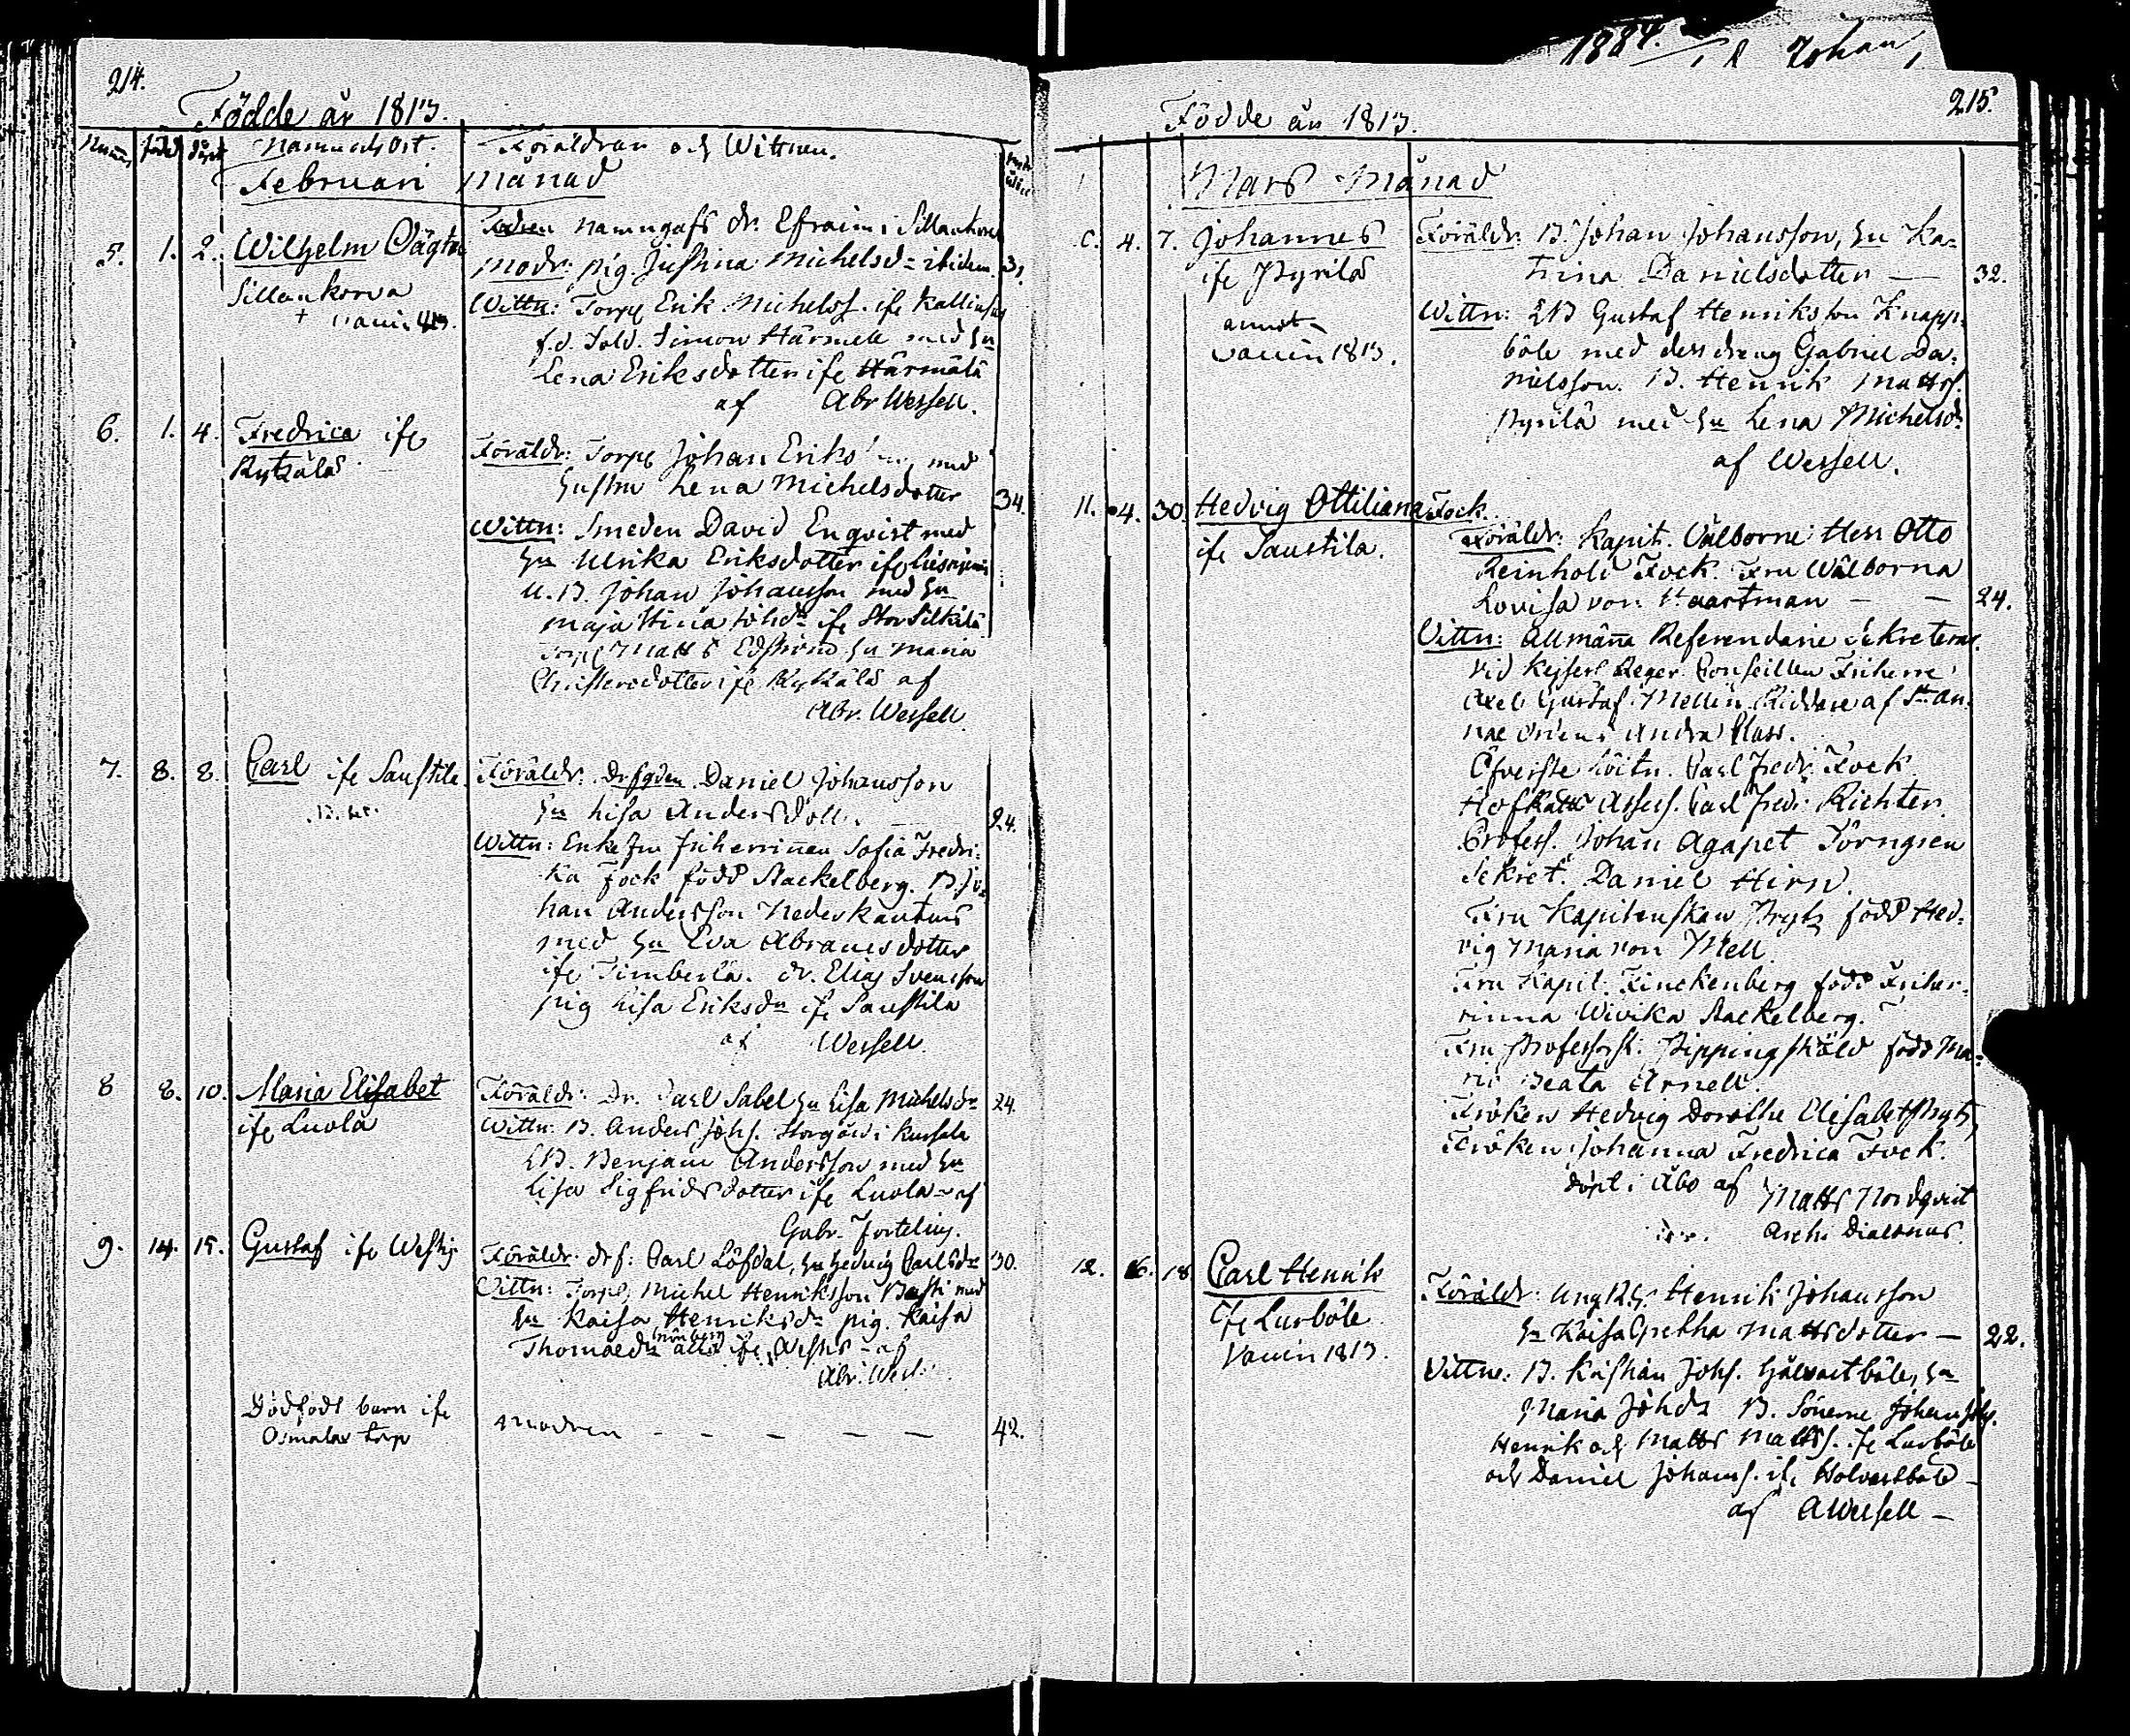 214.
Födde år 1813.
Num föd döpt Namn och Ort. Föräldrar och Wittnen.
Februari Månad
5. 1. 2. Wilhelm Oägta
Sillankorva
Vaccin
Fadren namngafs dr. Efraim i Sillankorva
Modr: pig. Justina Michelsdr ibidem. 31.
Wittn: Torp Erik Michelss. ifr
f.d. Sold. Simon Härmell med hu
Lena Eriksdotter ifr Härmälä
af Abr Wessell.
6. 1. 4. Fredrica ifr
Kykälä
Föräldr: Torp Johan Eriks med
hustru Lena Michelsdotter 34.
Wittn: Smeden David Enqvist med
hu Ulrika Eriksdotter ifr
U. B. Johan Johansson med hu
Maja Stina Johdr ifr Stor Silkilä
Torp Matts Edström hu Maria
Christersdotter ifr Kykälä af
Abr. Wessell
7. 8. 8. Carl ifr Saustila.
Föräldr: Daniel Johansson
hu Lisa Andersdott. 24.
Wittn: Enkefru Friherrinnan Sofia Fredri-
ka Fock född Stackelberg. B. Jo-
han Andersson Nederkautus
med hu Eva Abramsdotter
ifr Timberla. dr. Elias Svensson
pig Lisa Eriksdr ifr Saustila
af Wessell.
8 8. 10. Maria Elisabet
ifr Luola
Föräldr: Dr. Carl Sabel hu Lisa Michelsdr 24.
Wittn: B. Anders Johs. Storgård i Kussela
LB. Benjam Andersson med hu
Lisa Sigfridsdotter ifr Luola af
Gabr. Fortelius.
9. 14. 15. Gustaf ifr
Föräldr: drf: Carl Löfdal, hu Hedvig Carlsdr 30.
Wittn: Torp Michel Henriksson med
hu Kaisa Henriksdr pig. Kaisa
Thomasdr alla ifr af
Abr. Wess.
Dödfödt barn ifr
Osmalax torp
Modren – – – – – 42.
1884. Johan
215.
Födde år 1813.
Mars Månad
4. 7. Johannes
ifr Pyrilä
Vaccin 1813.
Föräldr: B. Johan Johansson, hu Ka-
trina Danielsdotter — 32.
Wittn: LB Gustaf Henriksson Knapp-
böle med dess dreng Gabriel Da-
nielsson. B. Henrik Matts.
Pyrilä med hu Lena Michelsdr
af Wessell.
11. 4. 30. Hedvig Ottiliana Fock
ifr Saustila.
Föräldr: Kapit. Välborne Herr Otto
Reinhold Fock. Fru Wälborna
Lovisa von Haartman – – 24.
Vittn: Allmänna Referendarie Sekreteraren
vid Kejserl Reger. Conseillen Friherre
Axel Gustaf Mellin, Riddare af St: An-
nae Ordens Andra Class.
Öfverste Löitn. Carl Fredr. Fock
Hofrätts Assess. Carl Fredr. Richter
Profess. Johan Agapet Törngren
Sekret. Daniel Hirn.
Fru Kapitenskan Prytz född Hed-
vig Maria von Mell.
Fru Kapit. Finckenberg född Friher-
rinna Wivika Stackelberg.
Fru Professorsk. Pippingsköld född Ma-
ria Beata Arnell.
Fröken Hedvig Dorothe Elisabet Prytz
Fröken Johanna Fredrica Fock.
döpt i Åbo af Matts Nordqvist
Arch. Diaconus.
12. 16. 18. Carl Henrik
ifr Lurböle
Vaccin 1813.
Föräldr: Ung Henrik Johansson
hu Kaisa Gretha Mattsdotter — 22.
Vittn: B. Kristian Johs. hu
Maria Johdr B. Sönerne Johan
Henrik och Matts Matts. ifr Lurböle
och Daniel Johans. ifr
af A Wessell –